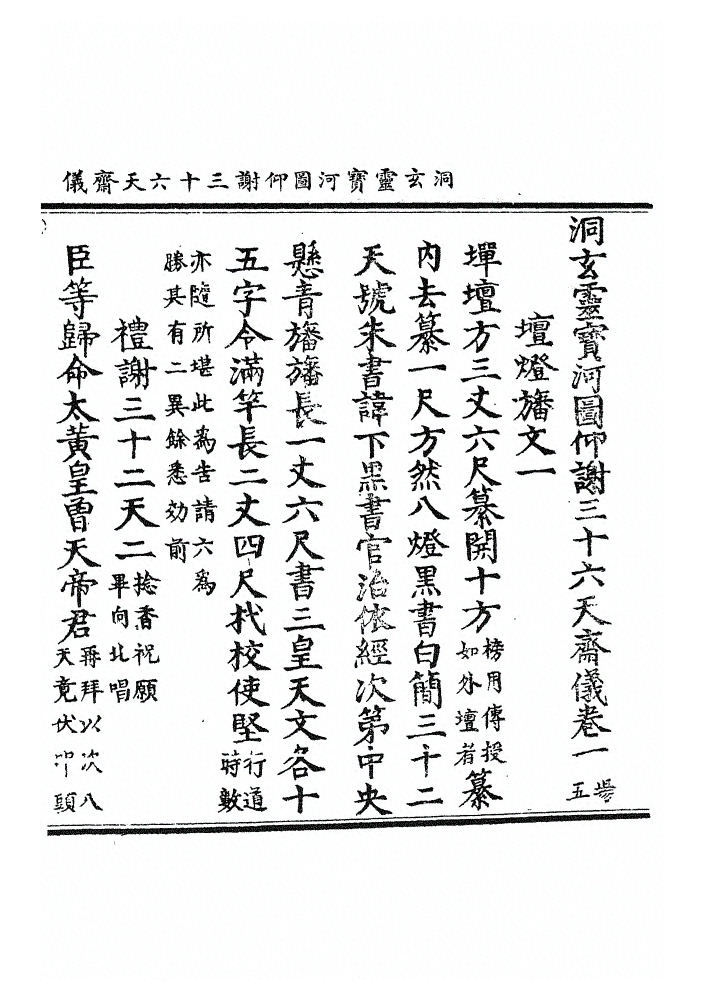 洞玄靈寳河圖仰謝三十六天齋儀
洞玄靈寳河圖仰謝三十六天齋儀卷一 五 場
壇燈旛文一
墠壇方三丈六尺纂開十方 榜用傳授如外壇者 纂
内去纂一尺方然八燈黒書白簡三十二
天號朱書諱下黒書官治依經次第中央
懸青旛旛長一丈六尺書三皇天文各十
五字令滿竿長二丈四尺找校使堅 行道時數
亦隨所堪此爲告請六爲
勝其有二異餘悉効前
禮謝三十二天二 捻香祝願畢向北唱
臣等歸命太黄皇曾天帝君 再拜以次八天竟伏叩頭